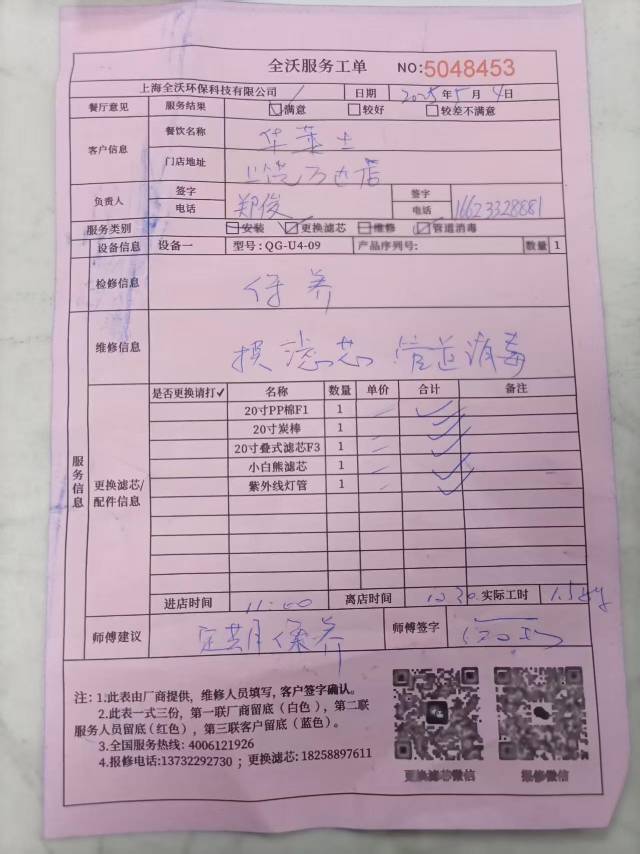 全沃服务工单 NO:5048453
上海全沃环保科技有限公司 日期 2025年5月4日
餐厅意见 服务结果 ☑满意 □较好 □较差不满意
客户信息 餐饮名称 华莱士
门店地址 万达店
负责人 签字 郑俊 签字
电话 电话 16623328881
服务类别 □安装 ☑更换滤芯 □维修 ☑管道消毒
设备信息 设备一 型号: QG-U4-09 产品序列号: 数量 1
检修信息 保养
维修信息 换滤芯 管道消毒
服务信息
更换滤芯/配件信息
是否更换请打✓ 名称 数量 单价 合计 备注
20寸PP棉F1 1 ✓
20寸炭棒 1 ✓
20寸叠式滤芯F3 1 ✓
小白熊滤芯 1 ✓
紫外线灯管 1 ✓
进店时间 11:00 离店时间 12:30 实际工时 1.5
师傅建议 定期保养 师傅签字
注: 1.此表由厂商提供, 维修人员填写, 客户签字确认。
2.此表一式三份, 第一联厂商留底 (白色), 第二联
服务人员留底(红色), 第三联客户留底 (蓝色)。
3.全国服务热线: 4006121926
4.报修电话:13732292730 ; 更换滤芯: 18258897611
更换滤芯微信 报修微信